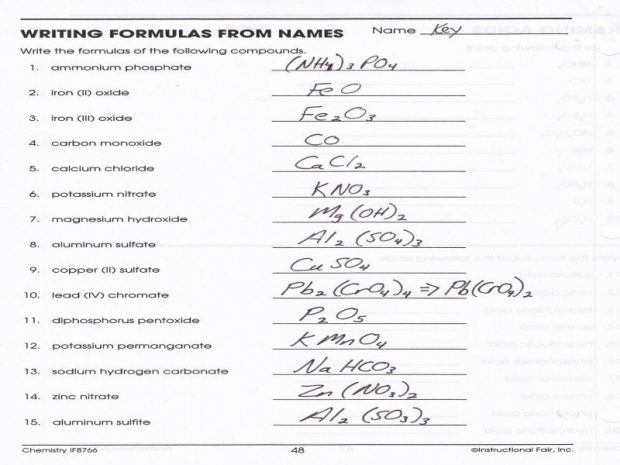 WRITING FORMULAS FROM NAMES Name Key
Write the formulas of the following compounds.
1. ammonium phosphate (NH₄)₃PO₄
2. iron (II) oxide FeO
3. iron (III) oxide Fe₂O₃
4. carbon monoxide CO
5. calcium chloride CaCl₂
6. potassium nitrate KNO₃
7. magnesium hydroxide Mg(OH)₂
8. aluminum sulfate Al₂(SO₄)₃
9. copper (II) sulfate CuSO₄
10. lead (IV) chromate Pb₂(CrO₄)₄ ⇒ Pb(CrO₄)₂
11. diphosphorus pentoxide P₂O₅
12. potassium permanganate KMnO₄
13. sodium hydrogen carbonate NaHCO₃
14. zinc nitrate Zn(NO₃)₂
15. aluminum sulfite Al₂(SO₃)₃
Chemistry IF8766 48 ©Instructional Fair, Inc.